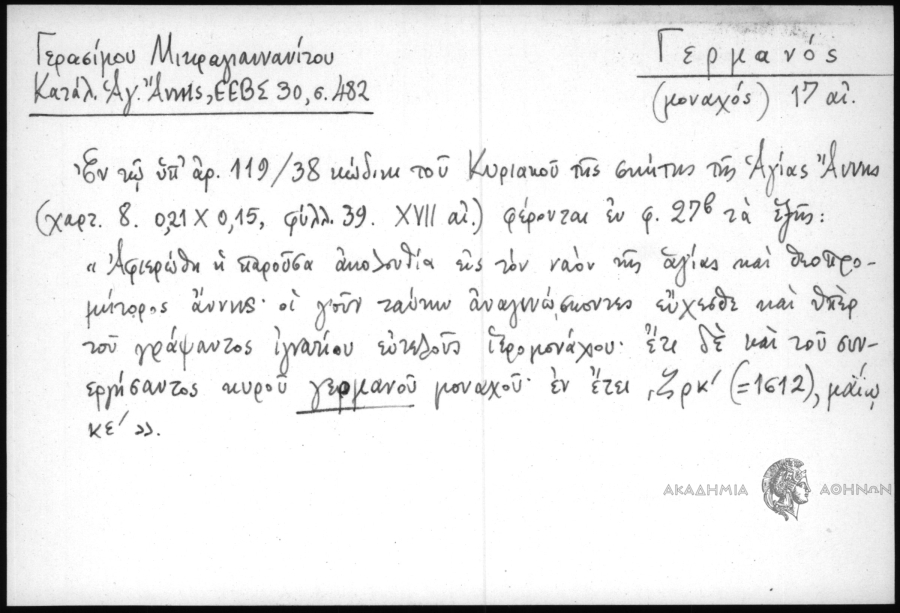 Γερασίμου Μικραγιαννανίτου
Κατάλ. Ἁγ. Ἄννης, ΕΕΒΣ 30, σ. 482
Γερμανός
(μοναχός) 17 αἰ.
Ἐν τῷ ὑπ' ἀρ. 119/38 κώδικι τοῦ Κυριακοῦ τῆς σκήτης τῆς Ἁγίας Ἄννης
(χαρτ. 8. 0,21 Χ 0,15, φύλλ. 39. XVII αἰ.) φέρονται ἐν φ. 27β τὰ ἑξῆς:
« Ἀφιερώθη ἡ παροῦσα ἀκολουθία εἰς τὸν ναὸν τῆς ἁγίας καὶ θεοπρο-
μήτορος ἄννης· οἱ γοῦν ταύτην ἀναγινώσκοντες εὔχεσθε καὶ ὑπὲρ
τοῦ γράψαντος ἰγνατίου εὐτελοῦς ἱερομονάχου· ἔτι δὲ καὶ τοῦ συν-
εργήσαντος κυροῦ γερμανοῦ μοναχοῦ· ἐν ἔτει ͵ζρκ' (=1612), μαΐῳ
κε' ».
ΑΚΑΔΗΜΙΑ ΑΘΗΝΩΝ